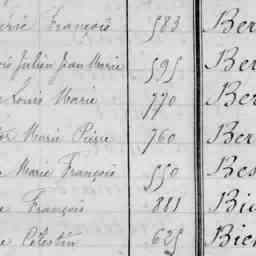 François 583 Ber
Julien Jean Marie 595 Ber
Louis Marie 770 Ber
Marie Pierre 760 Ber
Marie François 550 Bes
François 881 Bi
Célestin 625 Bie